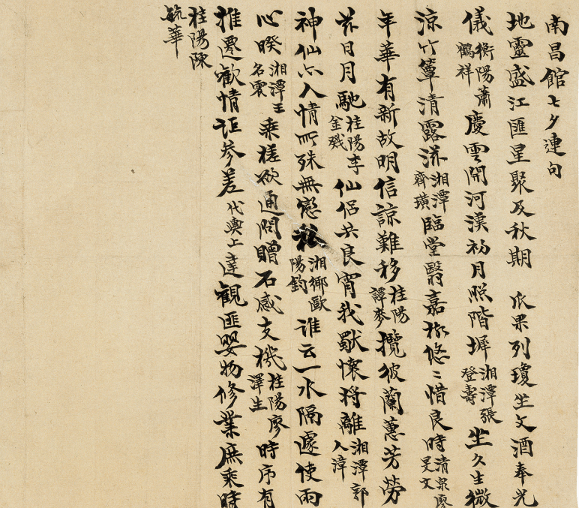 南昌館七夕連句
地靈盛江匯星聚及秋期瓜果列瓊坐文酒奉光
儀衡陽蕭鶴祥慶雲開河漢初月照階墀湘潭張登壽坐久生微
涼竹簟清露洗湘潭齊璜臨堂翳嘉樹悠〻惜良時清泉廖昺文
年華有新故明信諒難移桂陽譚麥攬彼蘭蕙芳勞
茲日月馳桂陽李金戣仙侶共良宵我獸懷將離湘潭郭人漳
神仙亦人情所殊無戀私湘鄉歐陽鈞誰云一水隔遽使兩
心暌湘潭王名震乘槎欲通問贈石感支機桂陽廖澤生時序有
推遷歡情詎參差代輿上達觀匪嬰物修業庶乘時
桂陽陳毓華